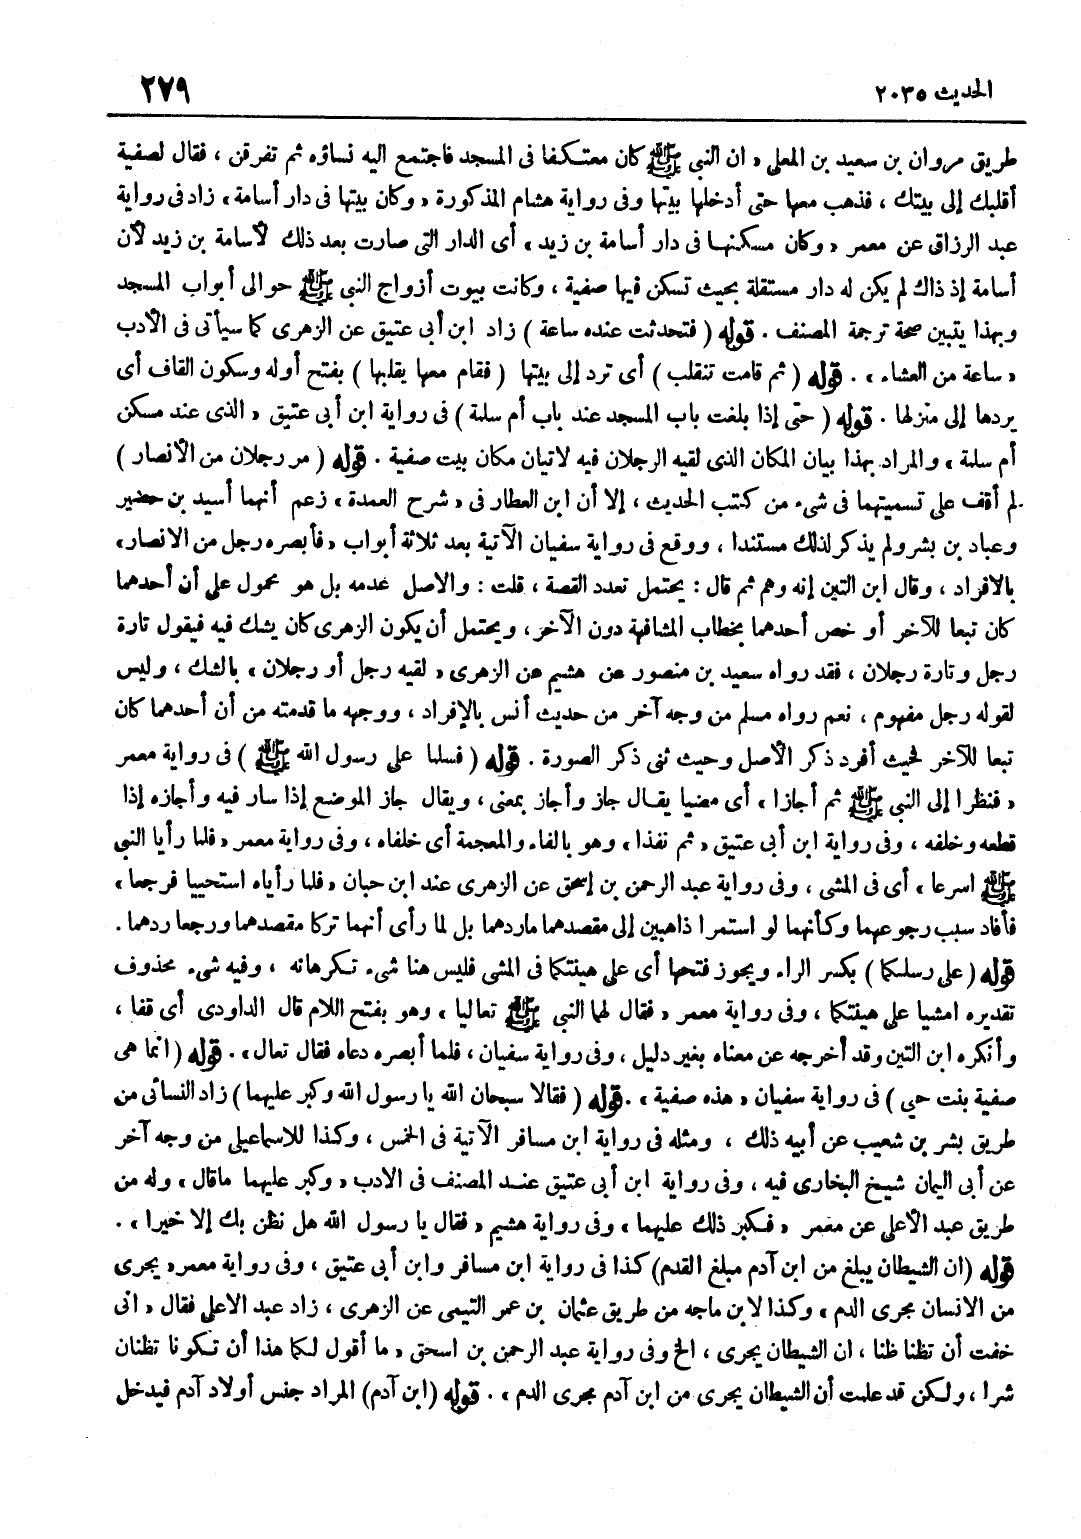 الحديث ٢٠٣٥
٢٧٩
طريق مروان بن سعيد بن المعلى « ان النبي ﷺ كان معتكفا فى المسجد فاجتمع اليه نساؤه ثم تفرقن ، فقال لصفية
أقلبك إلى بيتك ، فذهب معها حتى أدخلها بيتها وفى رواية هشام المذكورة « وكان بيتها فى دار أسامة » زاد فى رواية
عبد الرزاق عن معمر « وكان مسكنها فى دار أسامة بن زيد » أى الدار التى صارت بعد ذلك لأسامة بن زيد لأن
أسامة إذ ذاك لم يكن له دار مستقلة بحيث تسكن فيها صفية ، وكانت بيوت أزواج النبي ﷺ حوالى أبواب المسجد
وبهذا يتبين صحة ترجمة المصنف . قوله ( فتحدثت عنده ساعة ) زاد ابن أبى عتيق عن الزهرى كما سيأتى فى الأدب
« ساعة من العشاء » . قوله ( ثم قامت تنقلب ) أى ترد إلى بيتها ( فقام معها يقلبها ) بفتح أوله وسكون القاف أى
يردها إلى منزلها . قوله ( حتى إذا بلغت باب المسجد عند باب أم سلمة ) فى رواية ابن أبى عتيق « الذى عند مسكن
أم سلمة » والمراد بهذا بيان المكان الذى لقيه الرجلان فيه لاتيان مكان بيت صفية . قوله ( مر رجلان من الأنصار )
لم أقف على تسميتهما فى شىء من كتب الحديث ، إلا أن ابن العطار فى « شرح العمدة » زعم أنهما أسيد بن حضير
وعباد بن بشر ولم يذكر لذلك مستندا ، ووقع فى رواية سفيان الآتية بعد ثلاثة أبواب « فأبصره رجل من الانصار »
بالافراد ، وقال ابن التين إنه وهم ثم قال : يحتمل تعدد القصة ، قلت : والاصل عدمه بل هو محمول على أن أحدهما
كان تبعا للآخر أو خص أحدهما بخطاب المشافهة دون الآخر ، ويحتمل أن يكون الزهرى كان يشك فيه فيقول تارة
رجل وتارة رجلان ، فقد رواه سعيد بن منصور عن هشيم عن الزهرى « لقيه رجل أو رجلان » بالشك ، وليس
لقوله رجل مفهوم ، نعم رواه مسلم من وجه آخر من حديث أنس بالإفراد ، ووجهه ما قدمته من أن أحدهما كان
تبعا للآخر فحيث أفرد ذكر الأصل وحيث ثنى ذكر الصورة . قوله ( فسلما على رسول الله ﷺ ) فى رواية معمر
« فنظرا إلى النبى ﷺ ثم أجازا » أى مضيا يقال جاز وأجاز بمعنى ، ويقال جاز الموضع إذا سار فيه وأجازه إذا
قطعه وخلفه ، وفى رواية ابن أبى عتيق « ثم نفذا » وهو بالفاء والمعجمة أى خلفاه ، وفى رواية معمر « فلما رأيا النبي
ﷺ اسرعا » أى فى المشى ، وفى رواية عبد الرحمن بن إسحق عن الزهرى عند ابن حبان « فلما رأياه استحييا فرجعا »
فأفاد سبب رجوعهما وكأنهما لو استمرا ذاهبين إلى مقصدهما ماردهما بل لما رأى أنهما تركا مقصدهما ورجعا ردهما .
قوله ( على رسلكما ) بكسر الراء ويجوز فتحها أى على هينتكما فى المشى فليس هنا شىء تكرهانه ، وفيه شىء محذوف
تقديره امشيا على هينتكما ، وفى رواية معمر « فقال لهما النبي ﷺ تعاليا » وهو بفتح اللام قال الداودى أى قفا ،
وأنكره ابن التين وقد أخرجه عن معناه بغير دليل ، وفى رواية سفيان ، فلما أبصره دعاه فقال تعال » . قوله ( انما هى
صفية بنت حيي ) فى رواية سفيان « هذه صفية » . قوله ( فقالا سبحان الله يا رسول الله وكبر عليهما ) زاد النسائى من
طريق بشر بن شعيب عن أبيه ذلك ، ومثله فى رواية ابن مسافر الآتية فى الخمس ، وكذا للاسماعيلى من وجه آخر
عن أبى اليمان شيخ البخارى فيه ، وفى رواية ابن أبى عتيق عند المصنف فى الادب « وكبر عليهما ماقال » وله من
طريق عبد الأعلى عن معمر « فكبر ذلك عليهما » وفى رواية هشيم « فقال يا رسول الله هل نظن بك إلا خيرا » .
قوله (ان الشيطان يبلغ من ابن آدم مبلغ القدم) كذا فى رواية ابن مسافر وابن أبى عتيق ، وفى رواية معمر « يجرى
من الانسان مجرى الدم » وكذا لابن ماجه من طريق عثمان بن عمر التيمى عن الزهرى ، زاد عبد الاعلى فقال « انى
خفت أن تظنا ظنا ، ان الشيطان يجرى ، الخ وفى رواية عبد الرحمن بن اسحق « ما أقول لكما هذا أن تكونا تظنان
شرا ، ولكن قد علمت أن الشيطان يجرى من ابن آدم مجرى الدم » . قوله (ابن آدم) المراد جنس أولاد آدم فيدخل